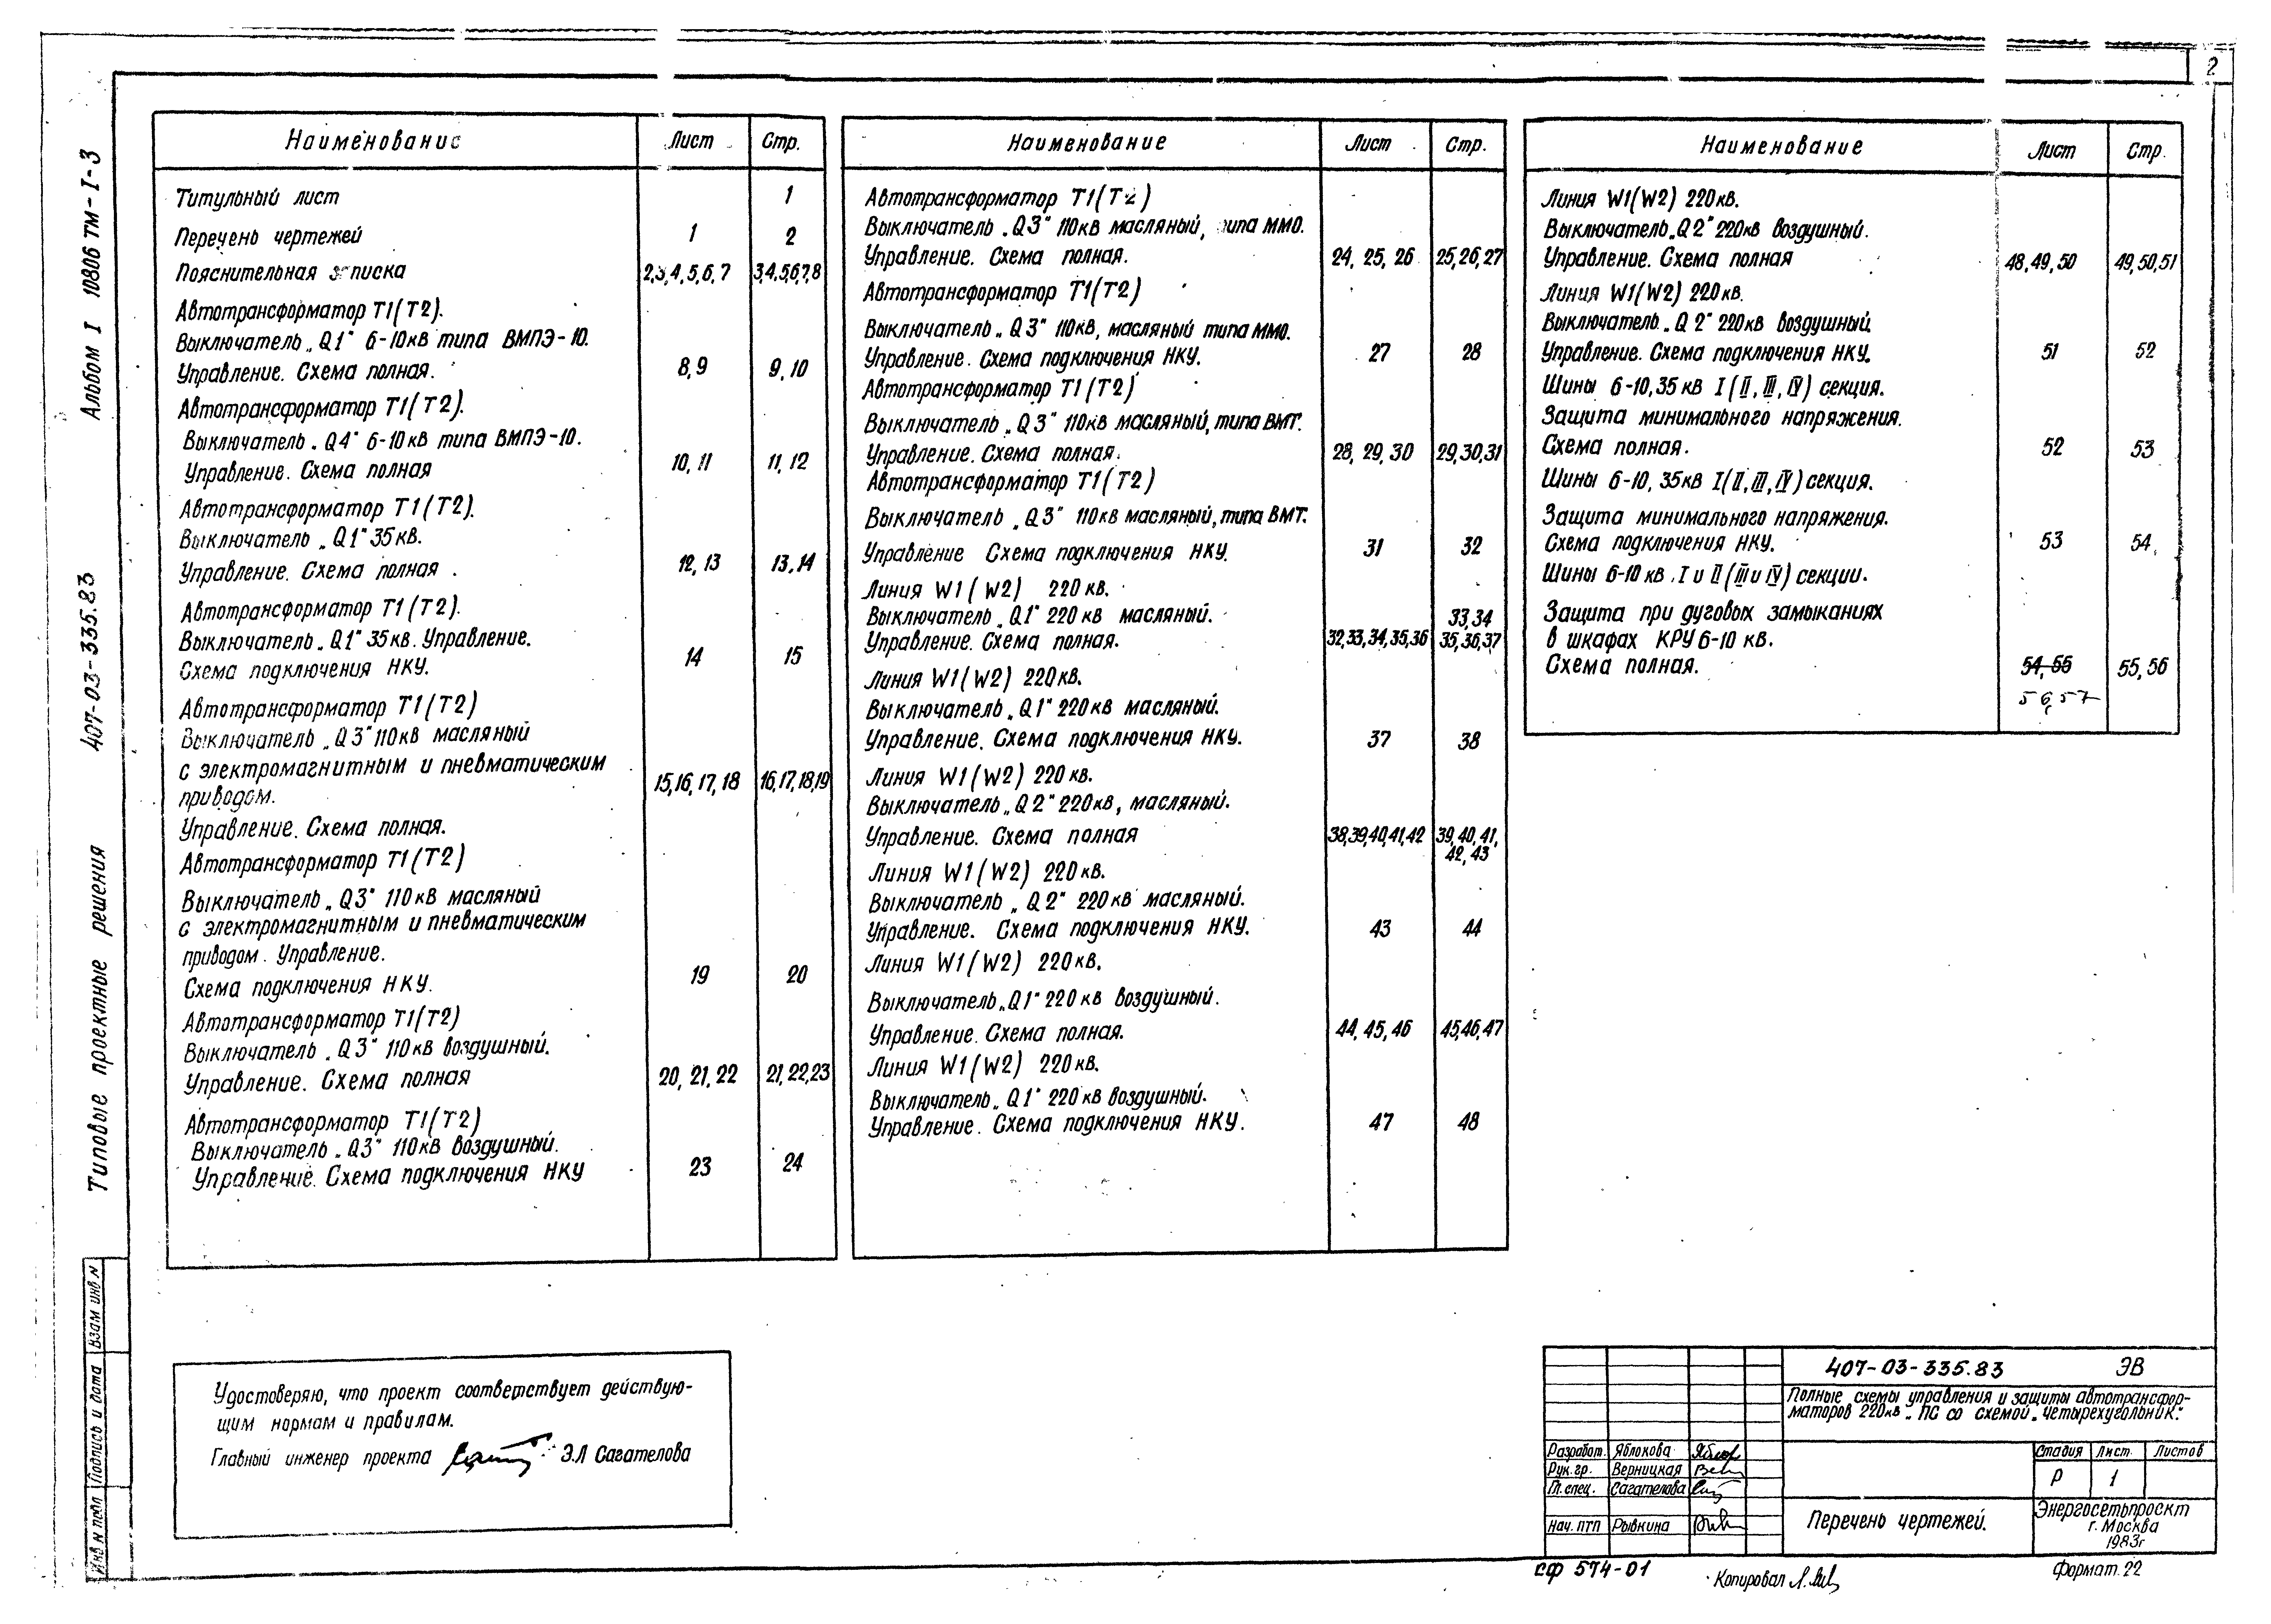 2
Альбом I 10806 тм-I-3
407-03-335.83
Типовые проектные решения
Взам инв N
Подпись и дата
Инв N подл
Наименование Лист Стр.
Титульный лист 1
Перечень чертежей 1 2
Пояснительная записка 2,3,4,5,6,7 3,4,5,6,7,8
Автотрансформатор Т1(Т2).
Выключатель „Q1" 6-10кв типа ВМПЭ-10.
Управление. Схема полная. 8,9 9,10
Автотрансформатор Т1(Т2).
Выключатель „Q4" 6-10кв типа ВМПЭ-10.
Управление. Схема полная 10,11 11,12
Автотрансформатор Т1(Т2).
Выключатель „Q1" 35кв.
Управление. Схема полная. 12,13 13,14
Автотрансформатор Т1(Т2).
Выключатель „Q1" 35кв. Управление.
Схема подключения НКУ. 14 15
Автотрансформатор Т1(Т2)
Выключатель „Q3" 110кв масляный
с электромагнитным и пневматическим 15,16,17,18 16,17,18,19
приводом.
Управление. Схема полная.
Автотрансформатор Т1(Т2)
Выключатель „Q3" 110кв масляный
с электромагнитным и пневматическим
приводом. Управление.
Схема подключения НКУ. 19 20
Автотрансформатор Т1(Т2)
Выключатель „Q3" 110кв воздушный.
Управление. Схема полная 20,21,22 21,22,23
Автотрансформатор Т1(Т2)
Выключатель „Q3" 110кв воздушный.
Управление. Схема подключения НКУ 23 24
Наименование Лист Стр.
Автотрансформатор Т1(Т2)
Выключатель „Q3" 110кв масляный, типа ММО.
Управление. Схема полная. 24, 25, 26 25,26,27
Автотрансформатор Т1(Т2)
Выключатель „Q3" 110кв, масляный типа ММО.
Управление. Схема подключения НКУ. 27 28
Автотрансформатор Т1(Т2)
Выключатель „Q3" 110кв масляный, типа ВМТ.
Управление. Схема полная. 28, 29, 30 29,30,31
Автотрансформатор Т1(Т2)
Выключатель „Q3" 110кв масляный, типа ВМТ.
Управление Схема подключения НКУ. 31 32
Линия W1(W2) 220кв.
Выключатель „Q1" 220кв масляный. 33,34
Управление. Схема полная. 32,33,34,35,36 35,36,37
Линия W1(W2) 220кв.
Выключатель „Q1" 220кв масляный.
Управление. Схема подключения НКУ. 37 38
Линия W1(W2) 220кв.
Выключатель „Q2" 220кв, масляный.
Управление. Схема полная 38,39,40,41,42 39,40,41,
42,43
Линия W1(W2) 220кв.
Выключатель „Q2" 220кв масляный.
Управление. Схема подключения НКУ. 43 44
Линия W1(W2) 220кв.
Выключатель „Q1" 220кв воздушный.
Управление. Схема полная. 44,45,46 45,46,47
Линия W1(W2) 220кв.
Выключатель „Q1" 220кв воздушный.
Управление. Схема подключения НКУ. 47 48
Наименование Лист Стр.
Линия W1(W2) 220кв.
Выключатель „Q2" 220кв воздушный.
Управление. Схема полная 48,49,50 49,50,51
Линия W1(W2) 220кв.
Выключатель „Q2" 220кв воздушный.
Управление. Схема подключения НКУ. 51 52
Шины 6-10,35кв I(II,III,IV) секция.
Защита минимального напряжения.
Схема полная. 52 53
Шины 6-10, 35кв I(II,III,IV) секция.
Защита минимального напряжения.
Схема подключения НКУ. 53 54
Шины 6-10кв. I и II(III и IV) секции.
Защита при дуговых замыканиях
в шкафах КРУ 6-10 кв.
Схема полная. 54,55 55,56
56,57
Удостоверяю, что проект соответствует действую-
щим нормам и правилам.
Главный инженер проекта Э.Л Сагателова
407-03-335.83 ЭВ
Полные схемы управления и защиты автотрансфор-
маторов 220кв. ПС со схемой „четырехугольник".
Разработ. Яблокова
Рук.гр. Верницкая
Гл.спец. Сагателова
Нач. ПТП Рывкина
Стадия Лист. Листов
Р 1
Перечень чертежей.
Энергосетьпроект
г. Москва
1983г
сф 574-01
Копировал
Формат.22